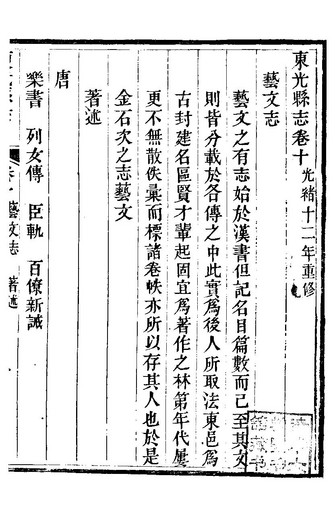 東光縣志卷十 光緒十二年重修
藝文志
藝文之有志始於漢書但記名目篇數而已至其文
則皆分載於各傳之中此實為後人所取法東邑為
古封建名區賢才輩起固宜為著作之林第年代屢
更不無散佚彙而標諸卷帙亦所以存其人也於是
金石次之志藝文
著述
唐
樂書 列女傳 臣軌 百僚新誡
藝文志 著述